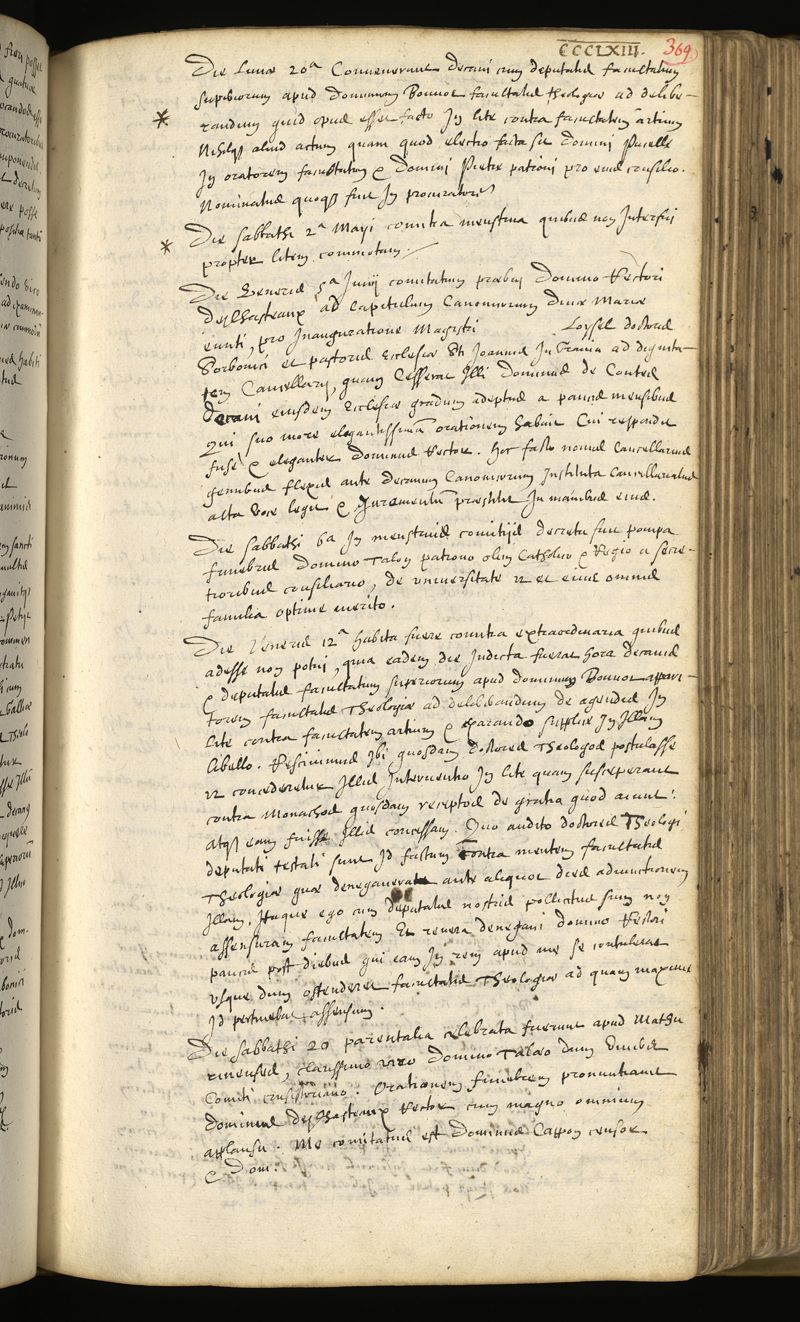 CCCLXIII. 369
Die Lunæ 20ª Convenerunt Decani cum deputatis facultatum
superiorum apud dominum Bonnot facultatis theologiæ ad delibe-
* randum quid opus esset facto In lite contra facultatem artium
Nihilq; aliud actum quam quod electio facta sit Domini Pucelle
In oratorem facultatum & Domini Pietre patroni pro eius consilio.
Nominatus quoq; fuit In procuratorem
* Die Sabbathi 2ª Maii comitia menstrua quibus non Interfui
propter litem commotam.
Die Veneris 5ª Junii comitatum præbui Domino Rectori
Deschasteaux ad Capitulum Canonicorum Divæ Mariæ
eunti, pro Inauguratione Magistri Loysel doctoris
Sorbonici et pastoris Ecclesiæ Sti Joannis In Gravia ad dignita-
tem Cancellarii, quam Cesserat Illi Dominus de Contes
Decani eiusdem Ecclesiæ gradum adeptus a paucis mensibus
Qui suo more elegantissimã orationem habuit Cui respondit
fuse & eleganter Dominus Rector. Hoc facto novus Cancellarius
genibus flexis ante Decanum Canonicorum Instituta Cancellariatus
alta voce legit & Juramentũ præstitit In manibus eius.
Die Sabbathi 6a In menstruis comitiis decreta fuit pompa
funebris Domino Talon patrono olim Catholico & Regio a secre-
tioribus consiliario, de universitate ut et eius omnis
familia optime merito.
Die Veneris 12ª habita fuere comitia extraordinaria quibus
adesse non potui, quia eadem die Indicta fuerat hora Decanis
& deputatis facultatum superiorum apud dominum Bonnot appari-
torem facultatis Theologiæ ad deliberandum de agendis In
lite contra facultatem artium & parando supplice In Illam
libello. Rescivimus Ibi quosdam doctores Theologos postulasse
ut concederetur Illis Interventio In lite quam susceperant
contra Monachos quosdam receptos de gratia quod aiunt:
atq; eam fuisse Illis concessam. Quo audito doctores Theologi
deputati testati sunt Id factum contra mentem facultatis
Theologiæ quæ denegaverat ante aliquot dies adiunctionem
Illam, Itaque ego cum deputatis nostris pollicitus sum non
assensuram facultatem Et revera denegavi domino Rectori
paucis post diebus qui eam In rem apud me se contulerat
usque dum ostenderet facultatis Theologiæ ad quam maxime
Id pertinebat assensum.
Die Sabbathi 20 parentalia celebrata fuerunt apud Mathu
rinenses, clarissimo viro Domino Talæo dum viveret
Comiti consistoriano. Orationem funebrem pronuntiavit
Dominus Deschasteaux Rector cum magno omnium
applausu. Me comitatus est Dominus Cappon censor
& Dom: